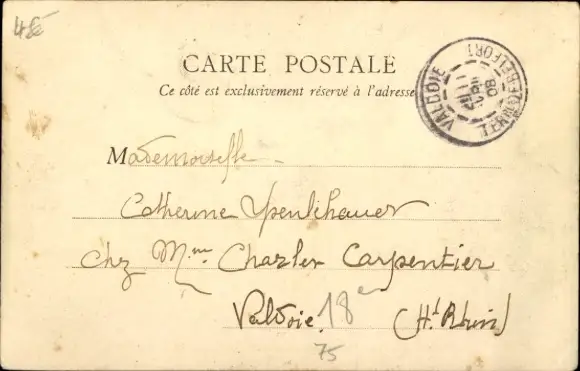 48e
CARTE POSTALE
Ce côté est exclusivement réservé à l'adresse
VALDOIE
TERRRE DE BELFORT
08
Mademoiselle
Catherine
chez Mme Charles Carpentier
Valdoie. 18e (Ht Rhin)
75